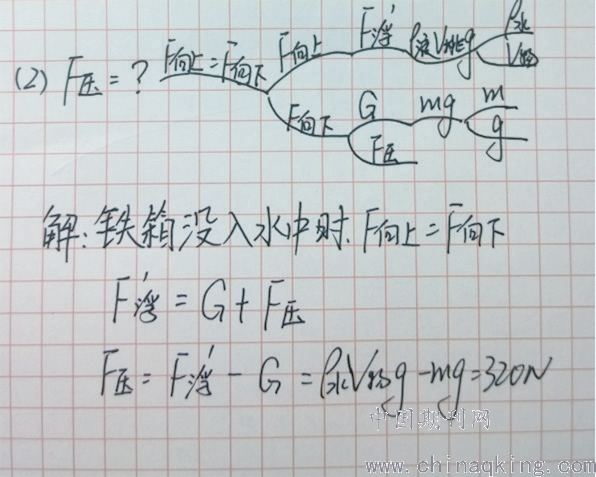 (2) F压=? F向上=F向下 F向上 F浮′ ρ液V排g ρ水
V物
F向下 G mg m
g
F压
解:铁箱没入水中时,F向上=F向下
F浮′=G+F压
F压=F浮′-G=ρ水V物g-mg=320N
中国期刊网
www.chinaqking.com